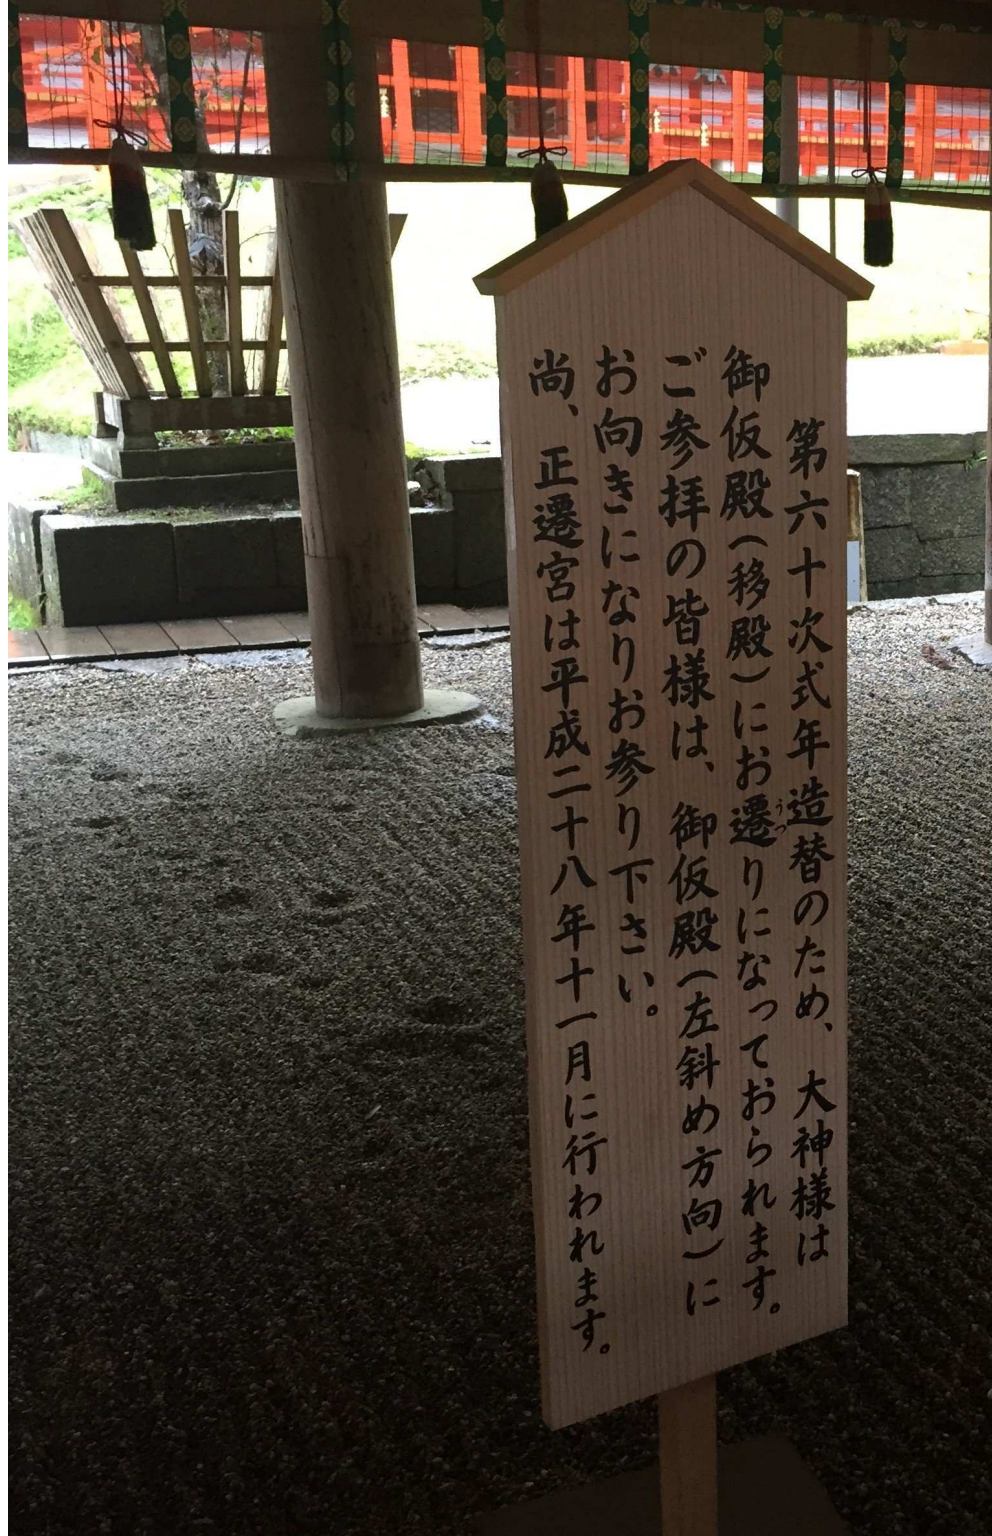 第六十次式年造替のため、大神様は
御仮殿(移殿)にお遷りになっております。
ご参拝の皆様は、御仮殿(左斜め方向)に
お向きになりお参り下さい。
尚、正遷宮は平成二十八年十一月に行われます。